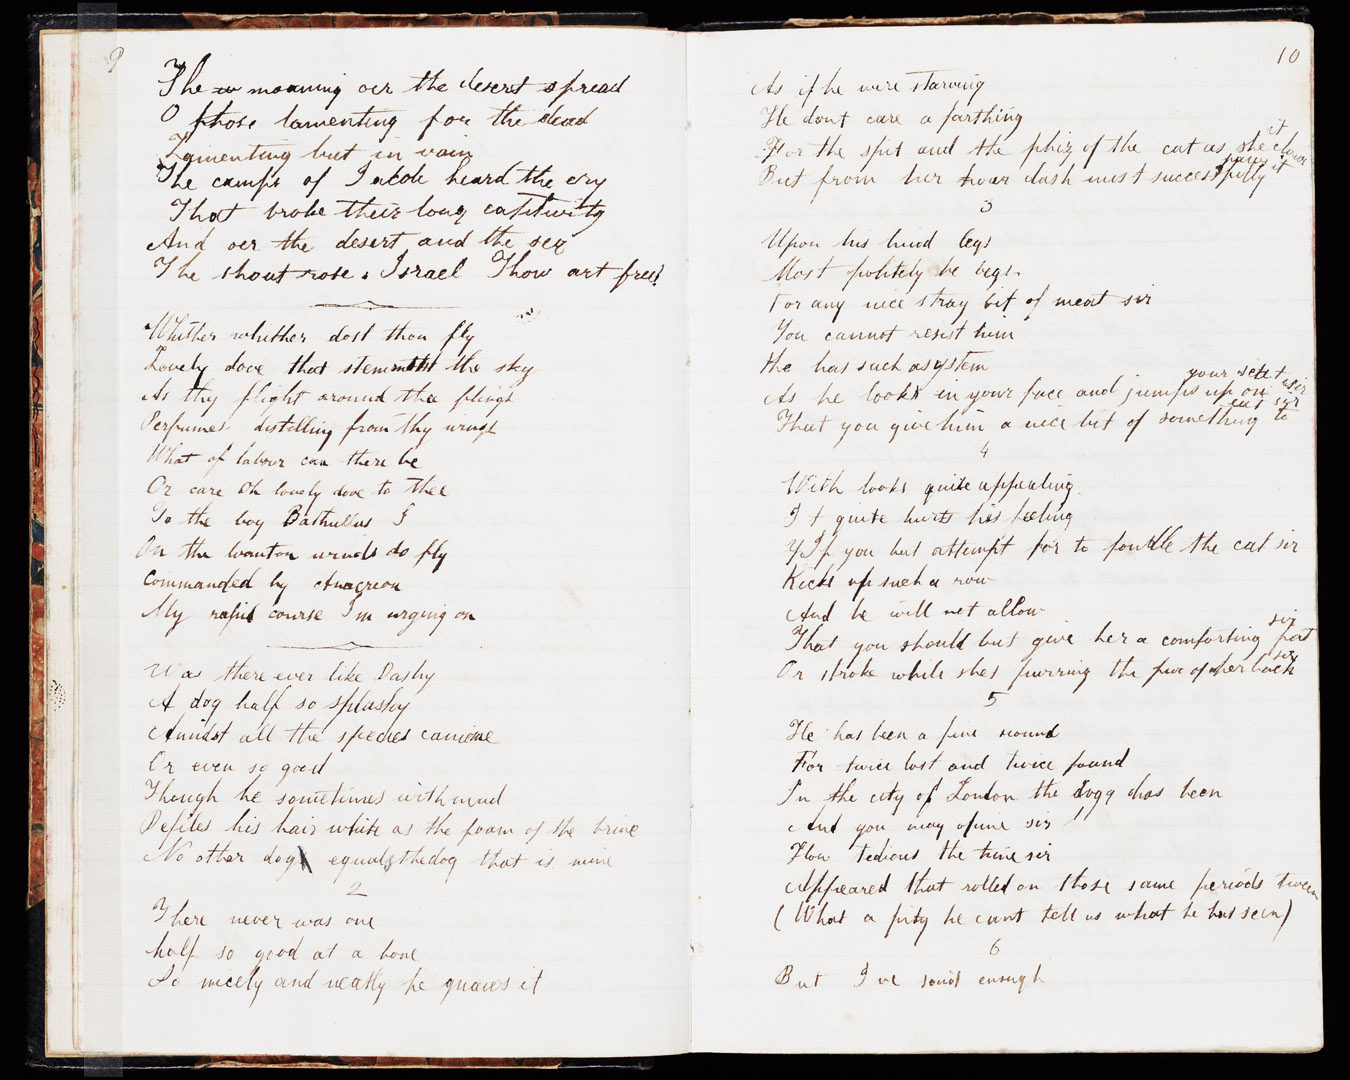 9
The moaning oer the desert spread
O those lamenting for the dead
Lamenting but in vain
The camps of Jacob heard the cry
That broke their long captivity
And oer the desert and the sea
The shout rose. Israel Thow art free!
Whither whither dost thou fly
Lovely dove that stemmest the sky
As thy flight around thee flings
Perfumes distilling from thy wings
What of labour can there be
Or care Oh lovely dove to Thee
To the boy Bathullus I
On the wanton winds do fly
Commanded by Anacreon
My rapid course I'm urging on
Was there ever like Dashy
A dog half so splashy
Amidst all the species canine
Or even so good
Though he sometimes with mud
Defiles his hair white as the foam of the brine
No other dog equals the dog that is mine
2
There never was one
half so good at a bone
So nicely and neatly he gnaws it
10
As if he were starving
He dont care a farthing
For the spit and the phiz of the cat as she claws it
But from her paws dash must successfully it
3
Upon his hind legs
Most politely he begs
For any nice stray bit of meat sir
You cannot resist him
He has such a system
As he looks in your face and jumps up on your seat sir
That you give him a nice bit of something to eat sir
4
With looks quite appealing
It quite hurts his feeling
If you but attempt for to fondle the cat sir
Kicks up such a row
And he will not allow
That you should but give her a comforting pat sir
Or stroke while shes purring the fur of her back sir
5
He has been a fine hound
For twice lost and twice found
In the city of London the dogg has been
And you may opine sir
How tedious the time sir
Appeared that rolled on those same periods tween
(What a pity he cannt tell us what he has seen)
6
But I've said enough